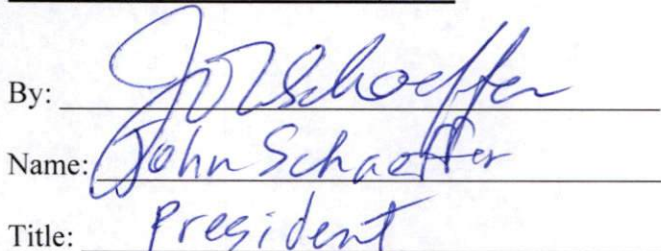 By: JohSchaeffer
Name: John Schaeffer
Title: President